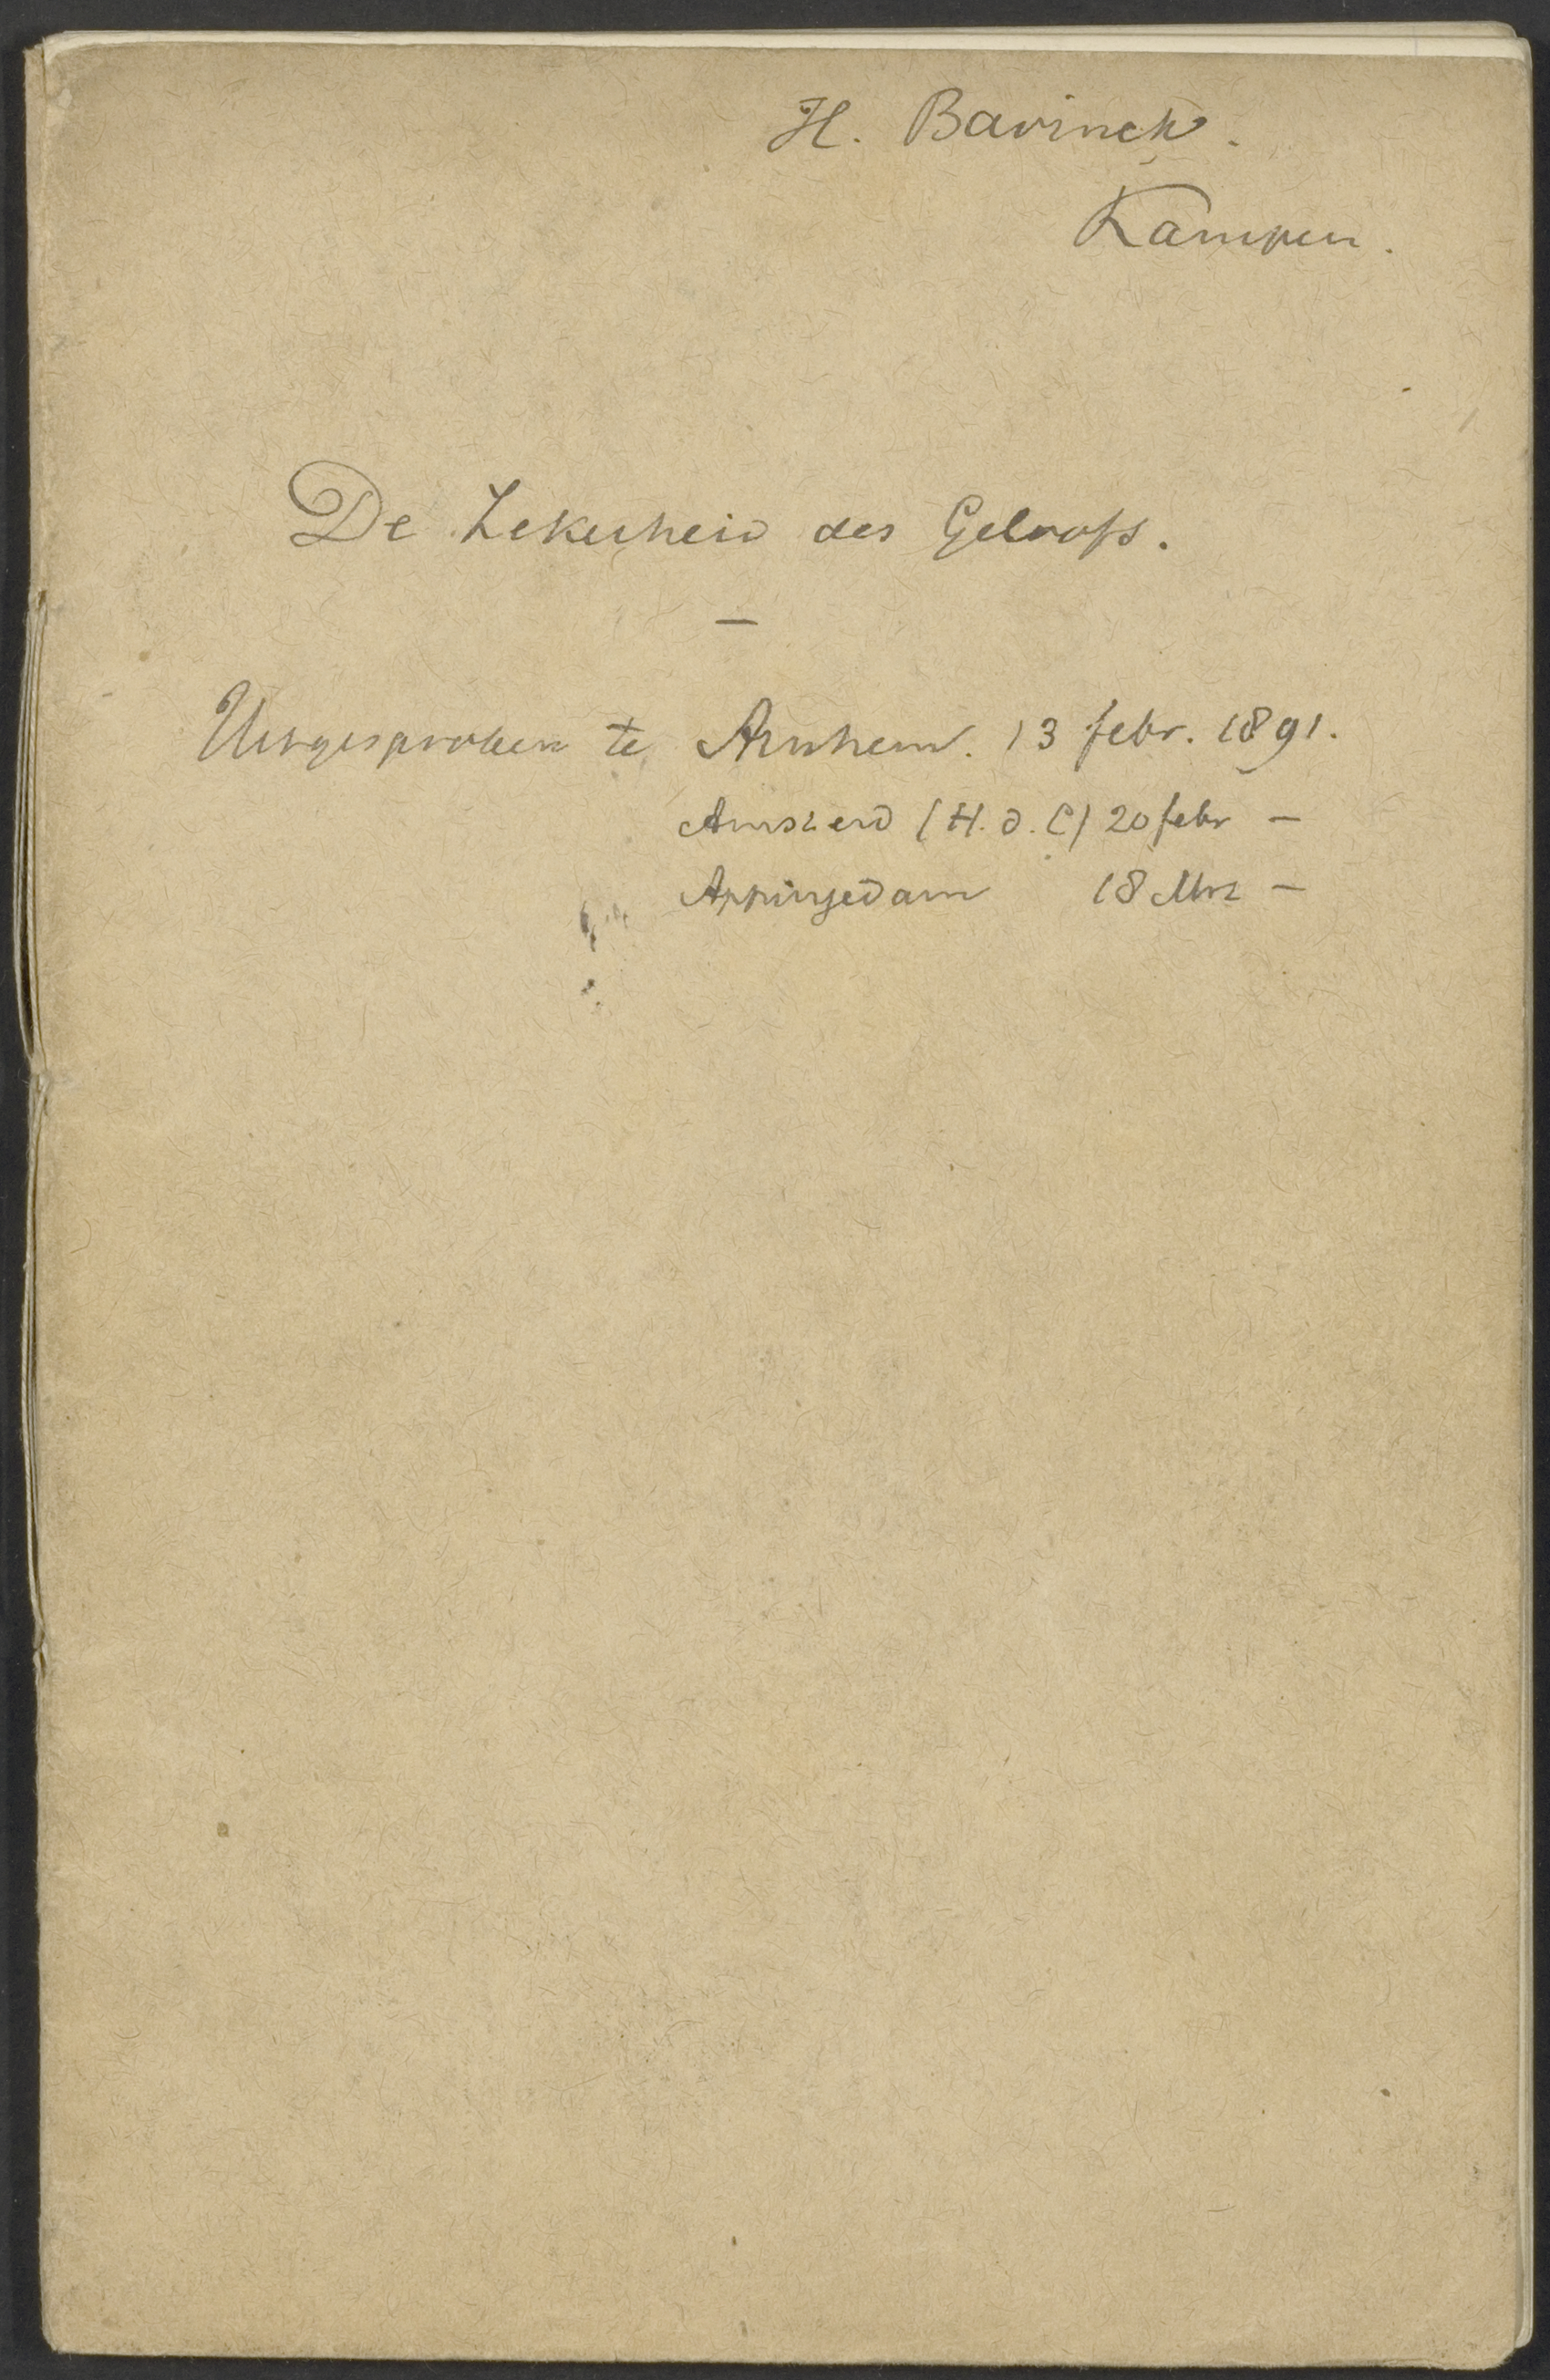 H. Bavinck.
Kampen.
De Zekerheid des Geloofs.
—
Uitgesproken te Arnhem. 13 febr. 1891.
Amsterd (H. d. C) 20 febr —
Appingedam 18 Mrt —